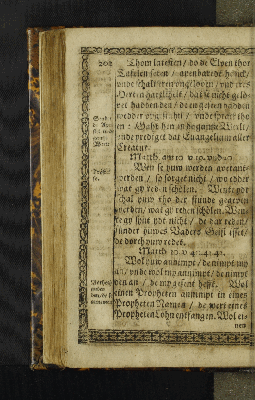 Thom lateſten / do de Elven thor
Tafelen ſeten / apenbarede he ſick /
unde ſchalt eren ungeloven / und eres
Herten hardicheit / dat ſe nicht gelö-
vet hadden den / de en geſeen hadden
wedder upgeſtan / unde ſprack tho
en: Gaht hen in de gantze Werlt /
unde prediget dat Evangelium aller
Creatur.
Matth. am 10. v. 19. und 20.
Wen ſe juw werden averant-
werden / ſo ſorget nicht / wo edder
wat gy reden ſchölen. Wente ydt
ſchal juw tho der ſtunde gegeven
werden / wat gy reden ſchölen. Wen-
te gy ſint ydt nicht / de dar reden /
ſunder juwes Vaders Geiſt iſſet /
de dorch juw redet.
Matth. 10. v. 40. 41. 42.
Wol juw annimpt / de nimpt my
an / unde wol my annimpt / de nimpt
den an / de my geſent hefft. Wol
einen Propheten annimpt in eines
Propheten Namen / de wert eines
Propheten Lohn entfangen. Wol ei-
nen